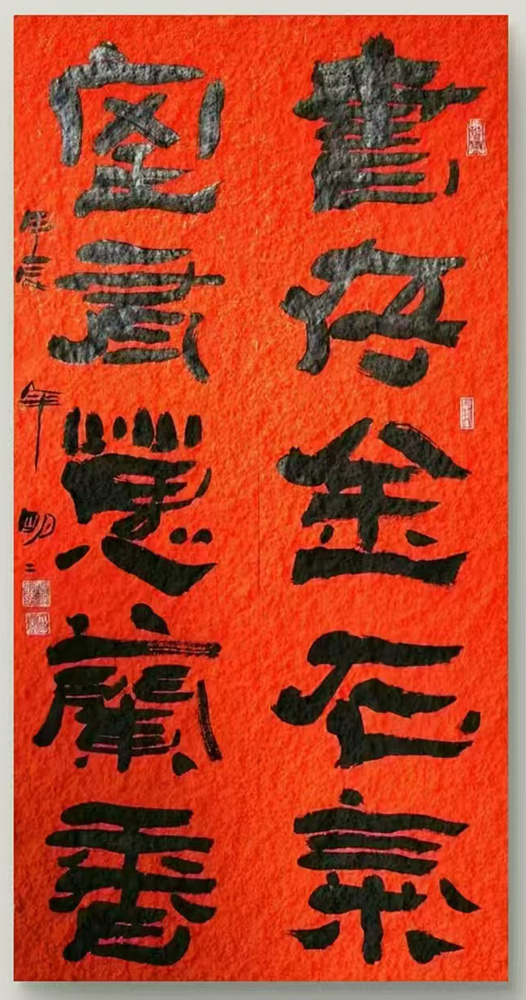 書存金石氣
室有蕙蘭香
甲辰年明二